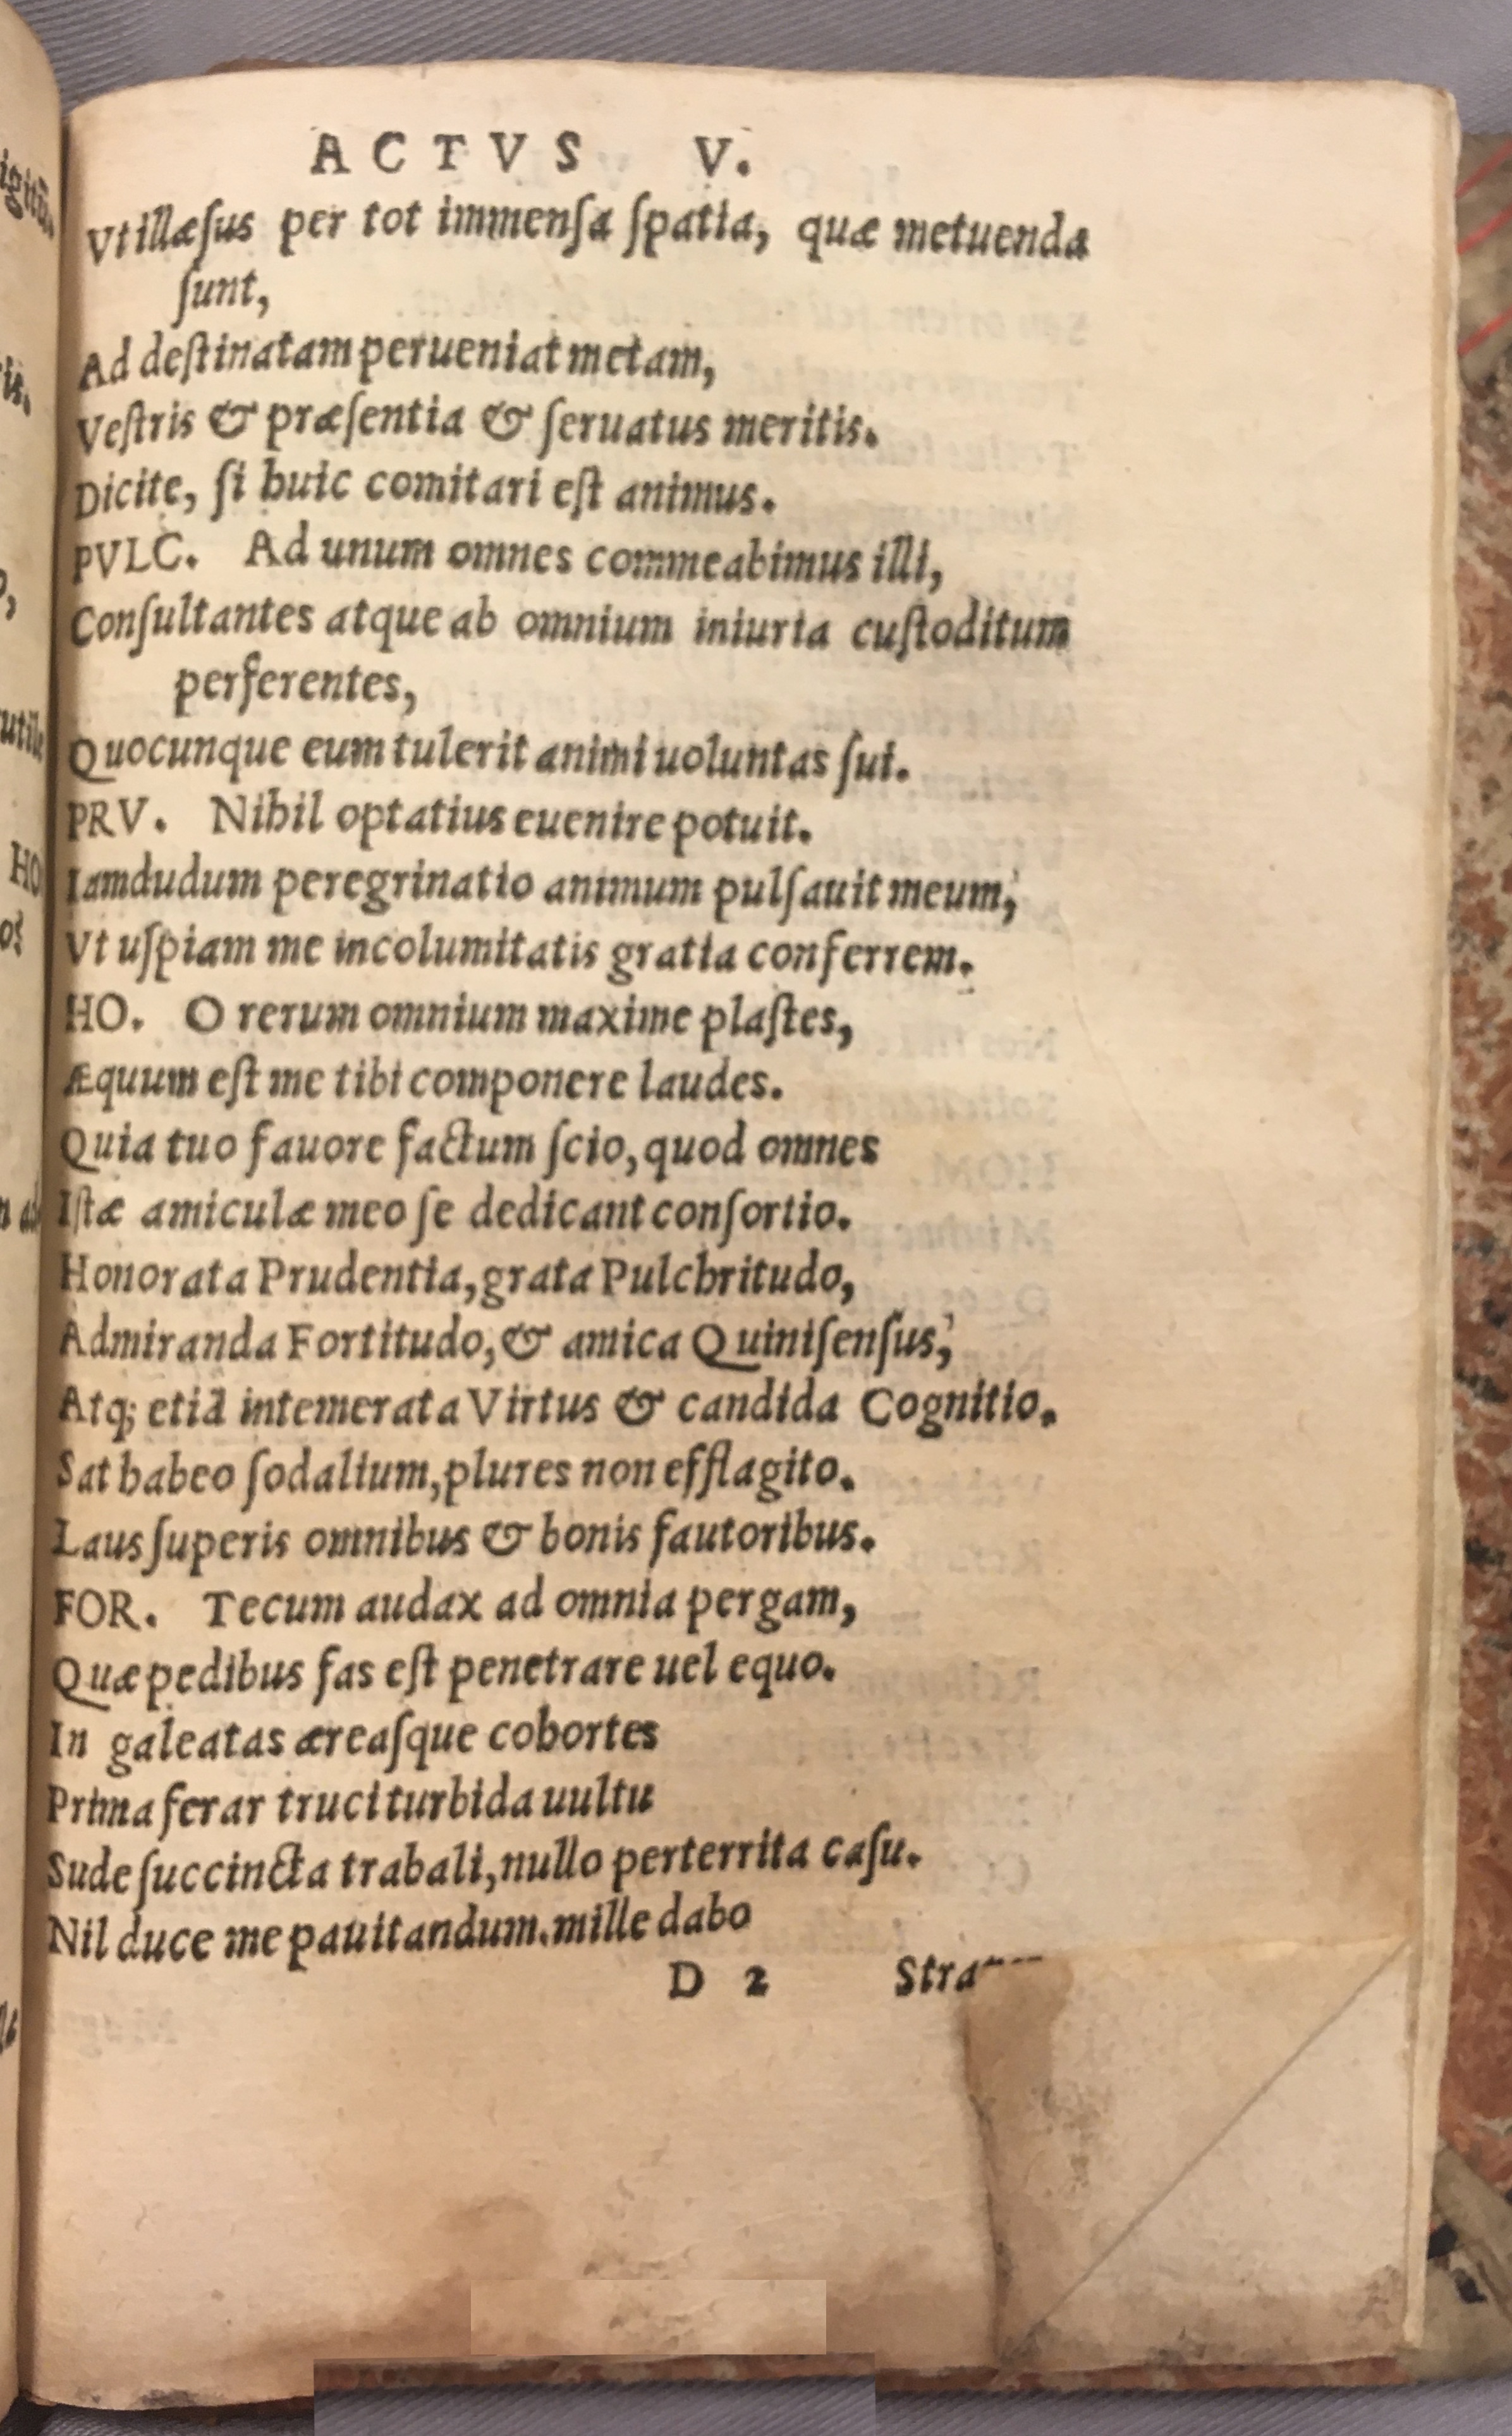 ACTVS V.
Vt illæſus per tot immenſa ſpatia, quæ metuenda
ſunt,
Ad deſtinatam perueniat metam,
Veſtris & præſentia & ſeruatus meritis.
Dicite, ſi huic comitari eſt animus.
PVLC. Ad unum omnes commeabimus illi,
Conſultantes atque ab omnium iniuria cuſtoditum
perferentes,
Quocunque eum tulerit animi uoluntas ſui.
PRV. Nihil optatius euenire potuit.
Iamdudum peregrinatio animum pulſauit meum,
Vt uſpiam me incolumitatis gratia conferrem.
HO. O rerum omnium maxime plaſtes,
Æquum eſt me tibi componere laudes.
Quia tuo fauore factum ſcio, quod omnes
Iſtæ amiculæ meo ſe dedicant conſortio.
Honorata Prudentia, grata Pulchritudo,
Admiranda Fortitudo, & amica Quiniſenſus,
Atq; etiã intemerata Virtus & candida Cognitio.
Sat habeo ſodalium, plures non efflagito.
Laus ſuperis omnibus & bonis fautoribus.
FOR. Tecum audax ad omnia pergam,
Quæ pedibus fas eſt penetrare uel equo.
In galeatas æreaſque cohortes
Prima ferar truci turbida uultu
Sude ſuccincta trabali, nullo perterrita caſu.
Nil duce me pauitandum. mille dabo
D 2